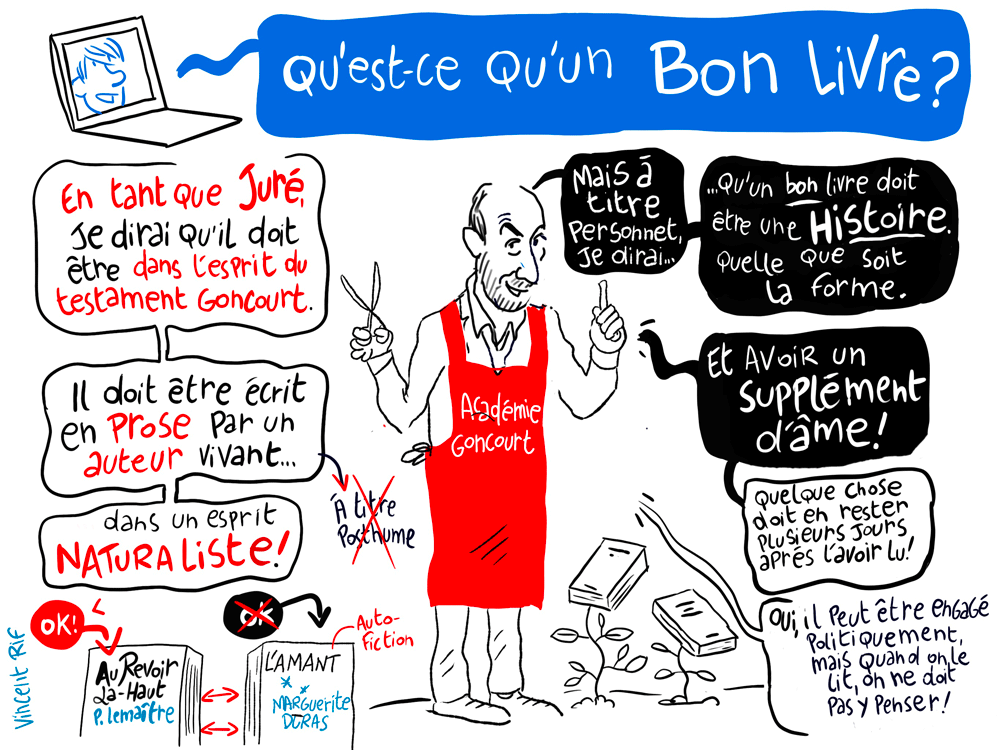 Qu'est-ce qu'un Bon Livre?
En tant que Juré,
Je dirai qu'il doit
être dans l'esprit du
testament Goncourt.
Il doit être écrit
en Prose Par un
auteur vivant...
À titre
Posthume
dans un esprit
NATURAListe!
Mais à
titre
Personnet,
Je dirai...
...Qu'un bon livre doit
être une HiStoire.
Quelle que soit
la forme.
Et AVoir un
supplément
d'âme!
Quelque chose
doit en rester
Plusieurs Jours
après l'avoir lu!
Oui, il Peut être engagé
Politiquement,
mais Quand on le
Lit, on ne doit
Pas y Penser!
Académie
Goncourt
OK!
Au Revoir
Là-Haut
P. Lemaître
OK
Auto-
Fiction
L'AMANT
MARGUERITE
DURAS
Vincent Rif